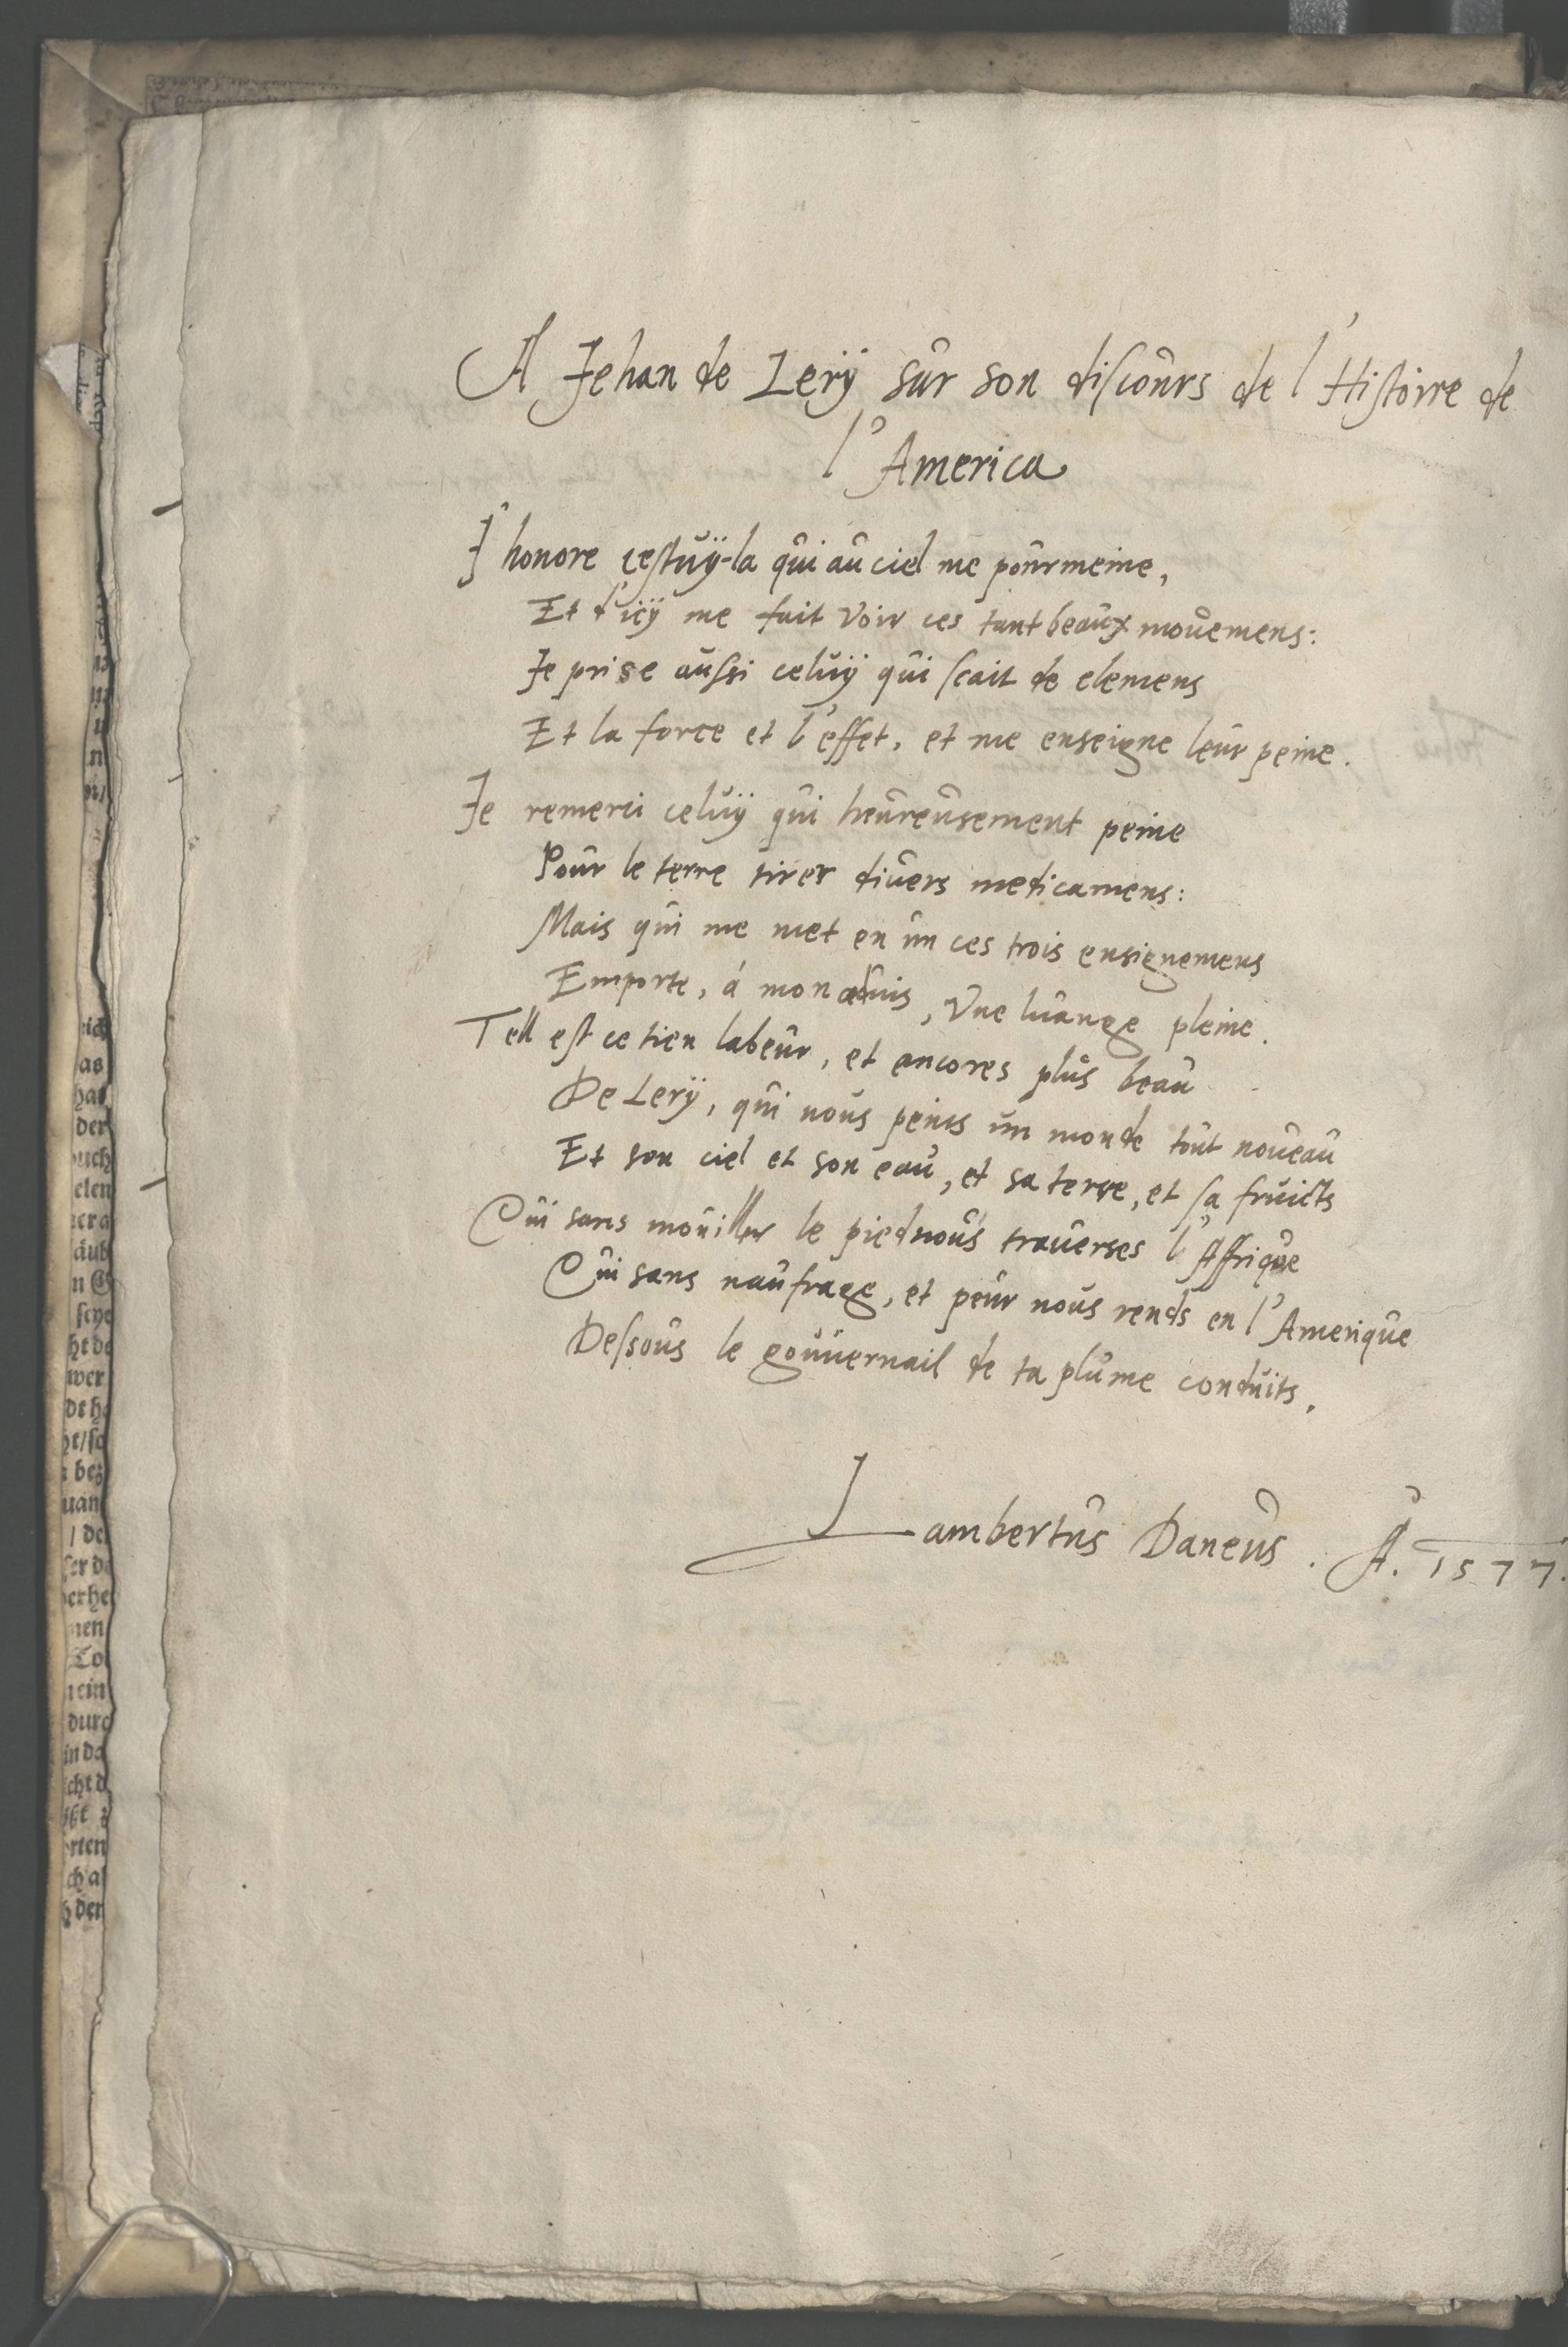 A Jehan de Lerÿ sur son discours de l'Histoire de
l'America
J'honore cestuÿ-la qui au ciel me pourmeine,
Et d'icÿ me fait voir ces tant beaux mouemens:
Je prise aussi celuÿ qui scait de elemens
Et la force et l'effet, et me enseigne leur peine.
Je remerci celuÿ qui heureusement peine
Pour le terre tirer divers medicamens:
Mais qui me met en un ces trois ensignemens
Emporte, á mon aduis, Vne luange pleine.
Tell est ce tien labeur, et encores plus beau
De Lerÿ, qui nous peins un monde tout noueau
Et son ciel et son eau, et sa terre, et sa fruicts
Qui sans mouiller le pied nous trauerses l'Affrique
Qui sans naufrage, et peur nous rends en l'Amerique
Dessous le gouuernail de ta plume conduits.
Lambertus Daneus. A. 1577.
ich
as
hat
der
uch
elen
äub
ht de
wer
uan
nen
ein
durc
in da
cht d
rten
ch al
der